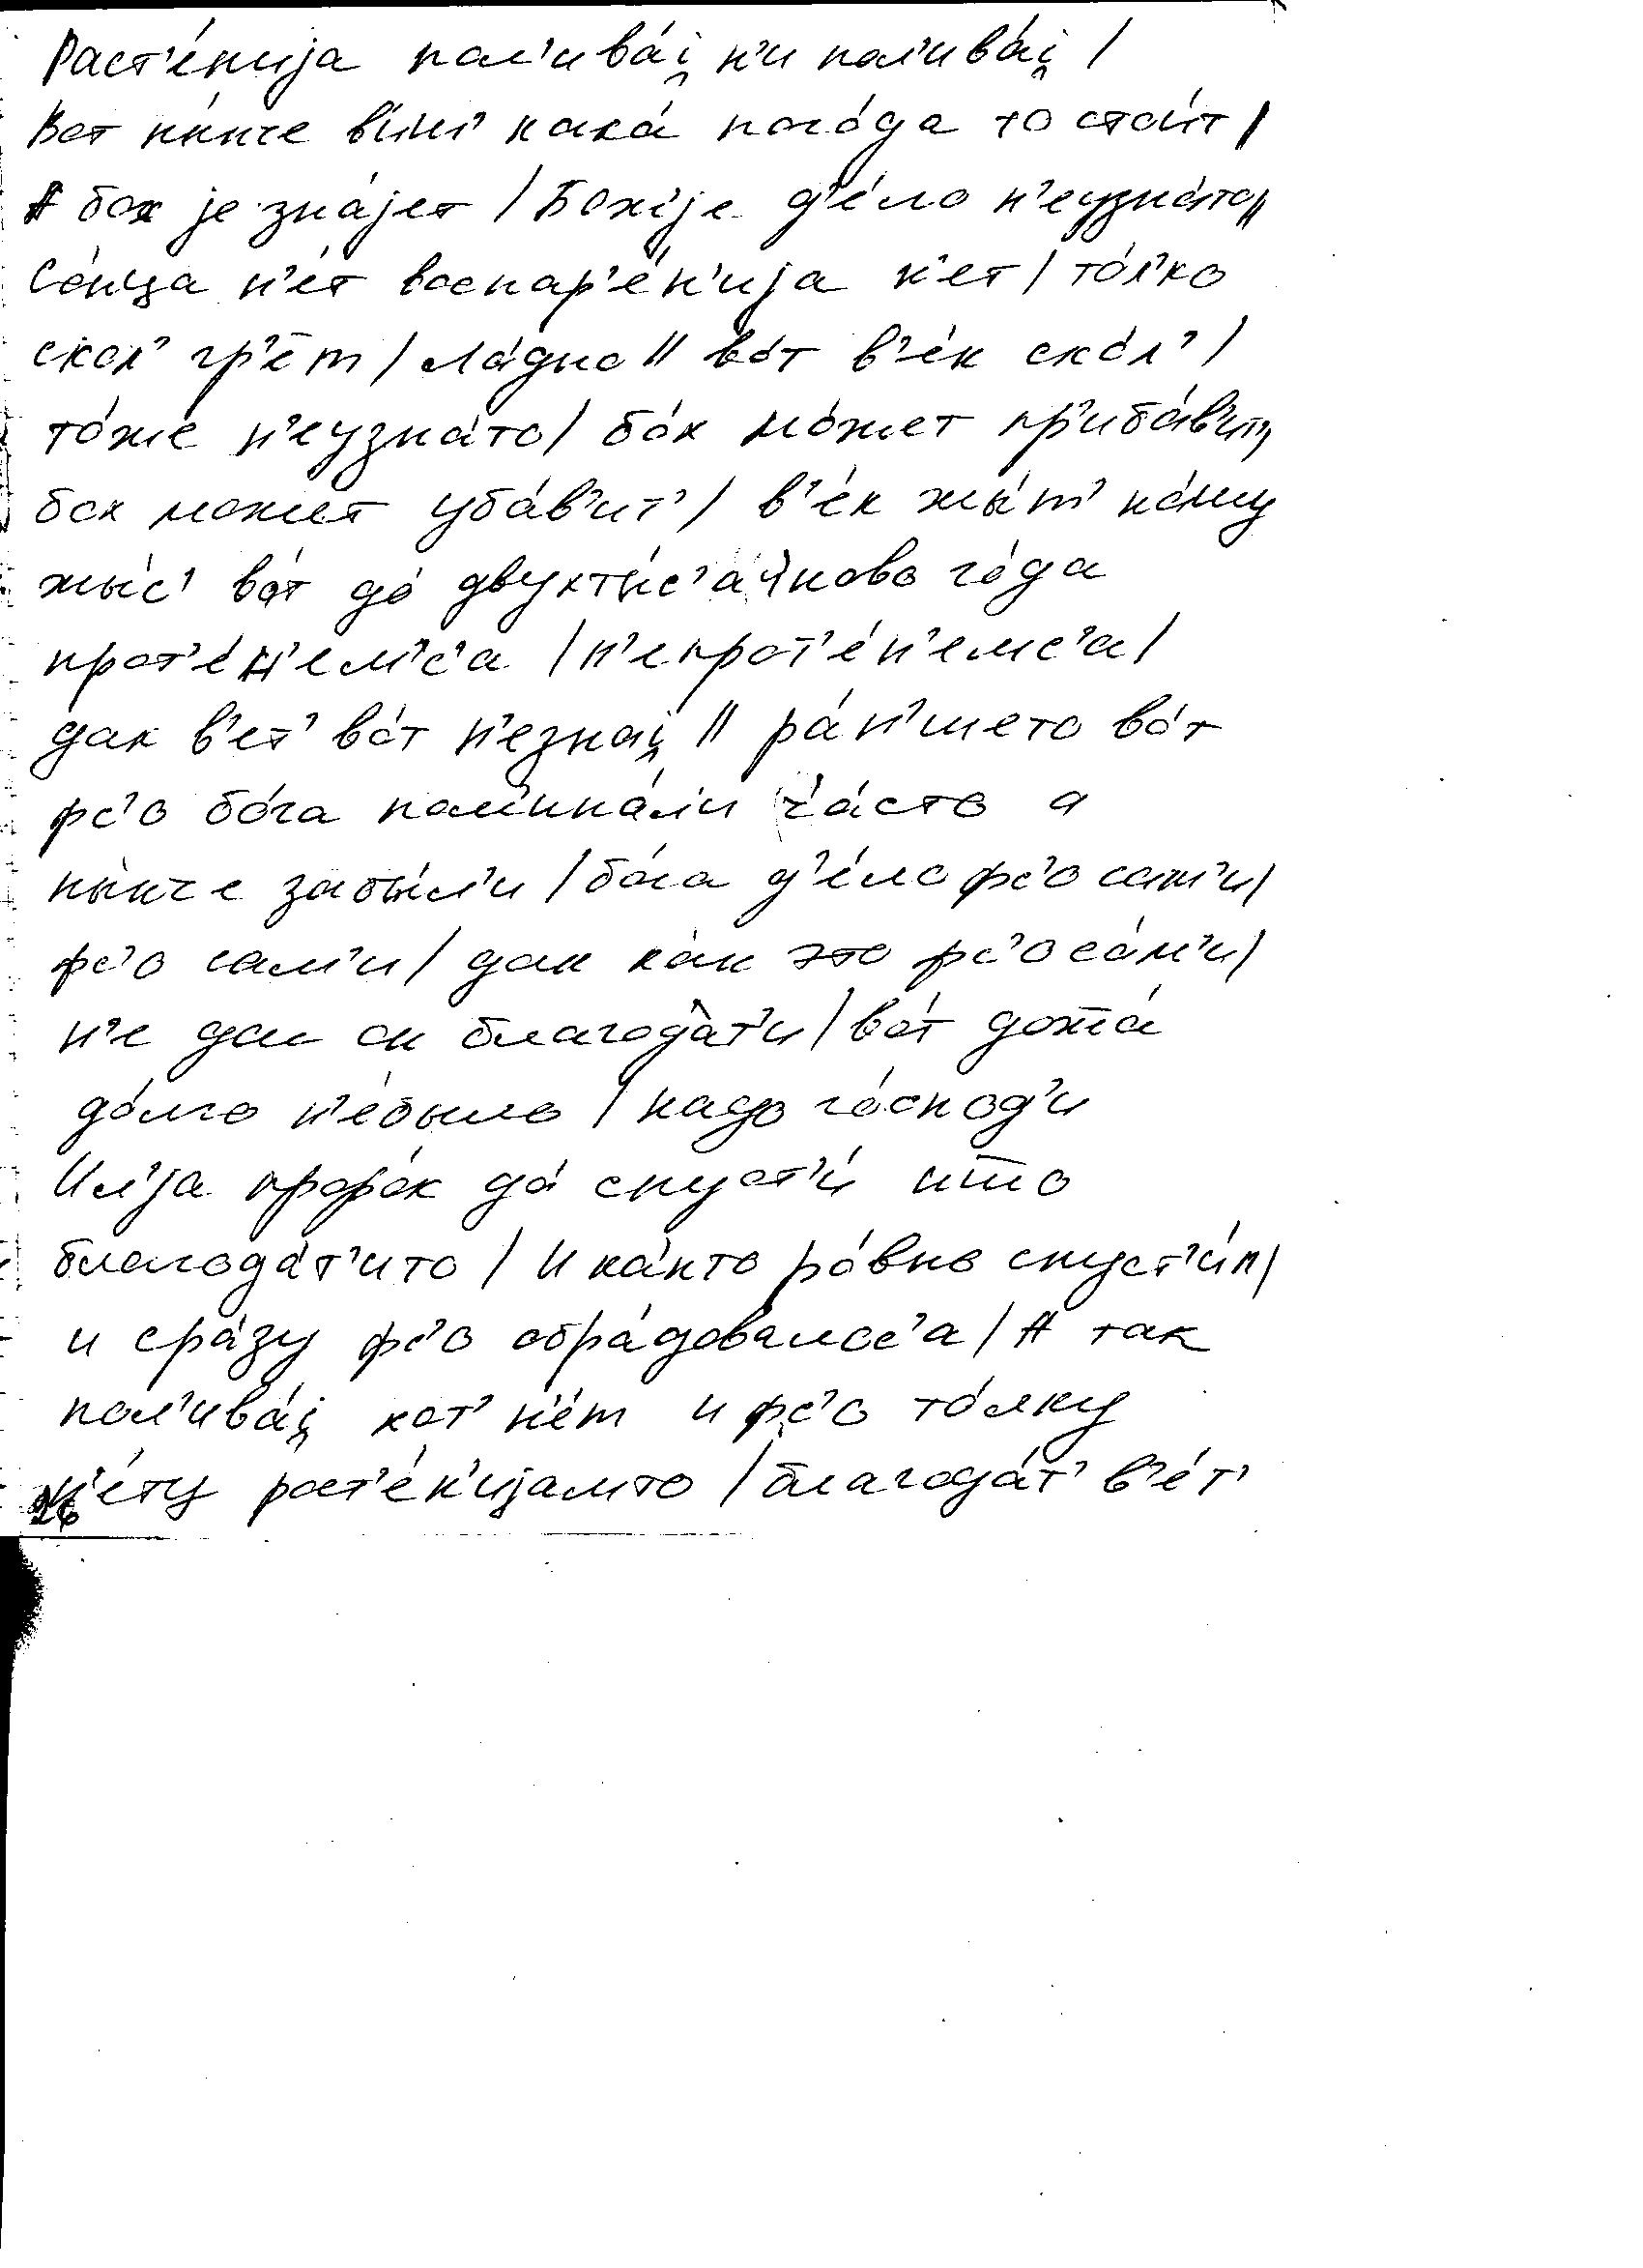 Раст'е́нија пол'ива́i̯ н'и пол'ива́i̯ /
Вот ны́нче в'ин' кака́ пого́да то стои́т /
А бох је зна́јет / Бо́жје д'е́ло н'еузна́то //
Со́нца н'е́т воспар'е́н'ија н'ет / то́л'ко
скол' гр'е̄т / ла́дно // во́т в'е́к ско́л' /
то́же н'еузна́то / бо́х мо́жет пр'иба́в'ит'
бох может уба́в'ит' / в'е́к жы́т' ко́му
жы́с' во́т до́ двухты́с'ачново го́да
прот'е́н'емс'а / н'епрот'е́н'емс'а /
дак в'ет' во́т н'езнаi̯ // ра́н'шето во́т
фс'о бо́га пом'ина́ли ча́сто а
ны́нче забы́л'и / бо́га д'е́ло фс'о сам'и /
фс'о сам'и / дак ка́к это фс'о са́м'и /
н'е дал он благода́т'и / во́т дожжа́
до́лго н'е́было / надо го́спод'и
Ил'ја проро́к да́ спуст'и́ што
благода́т'ито / И ка́кто ро́вно спуст'и́л /
и сра́зу фс'о обра́довалос'а / А так
пол'ива́i̯ хот' н'е́т и фс'о то́лку
н'е́ту раст'е́н'ијамто / благода́т' в'е́т'
26